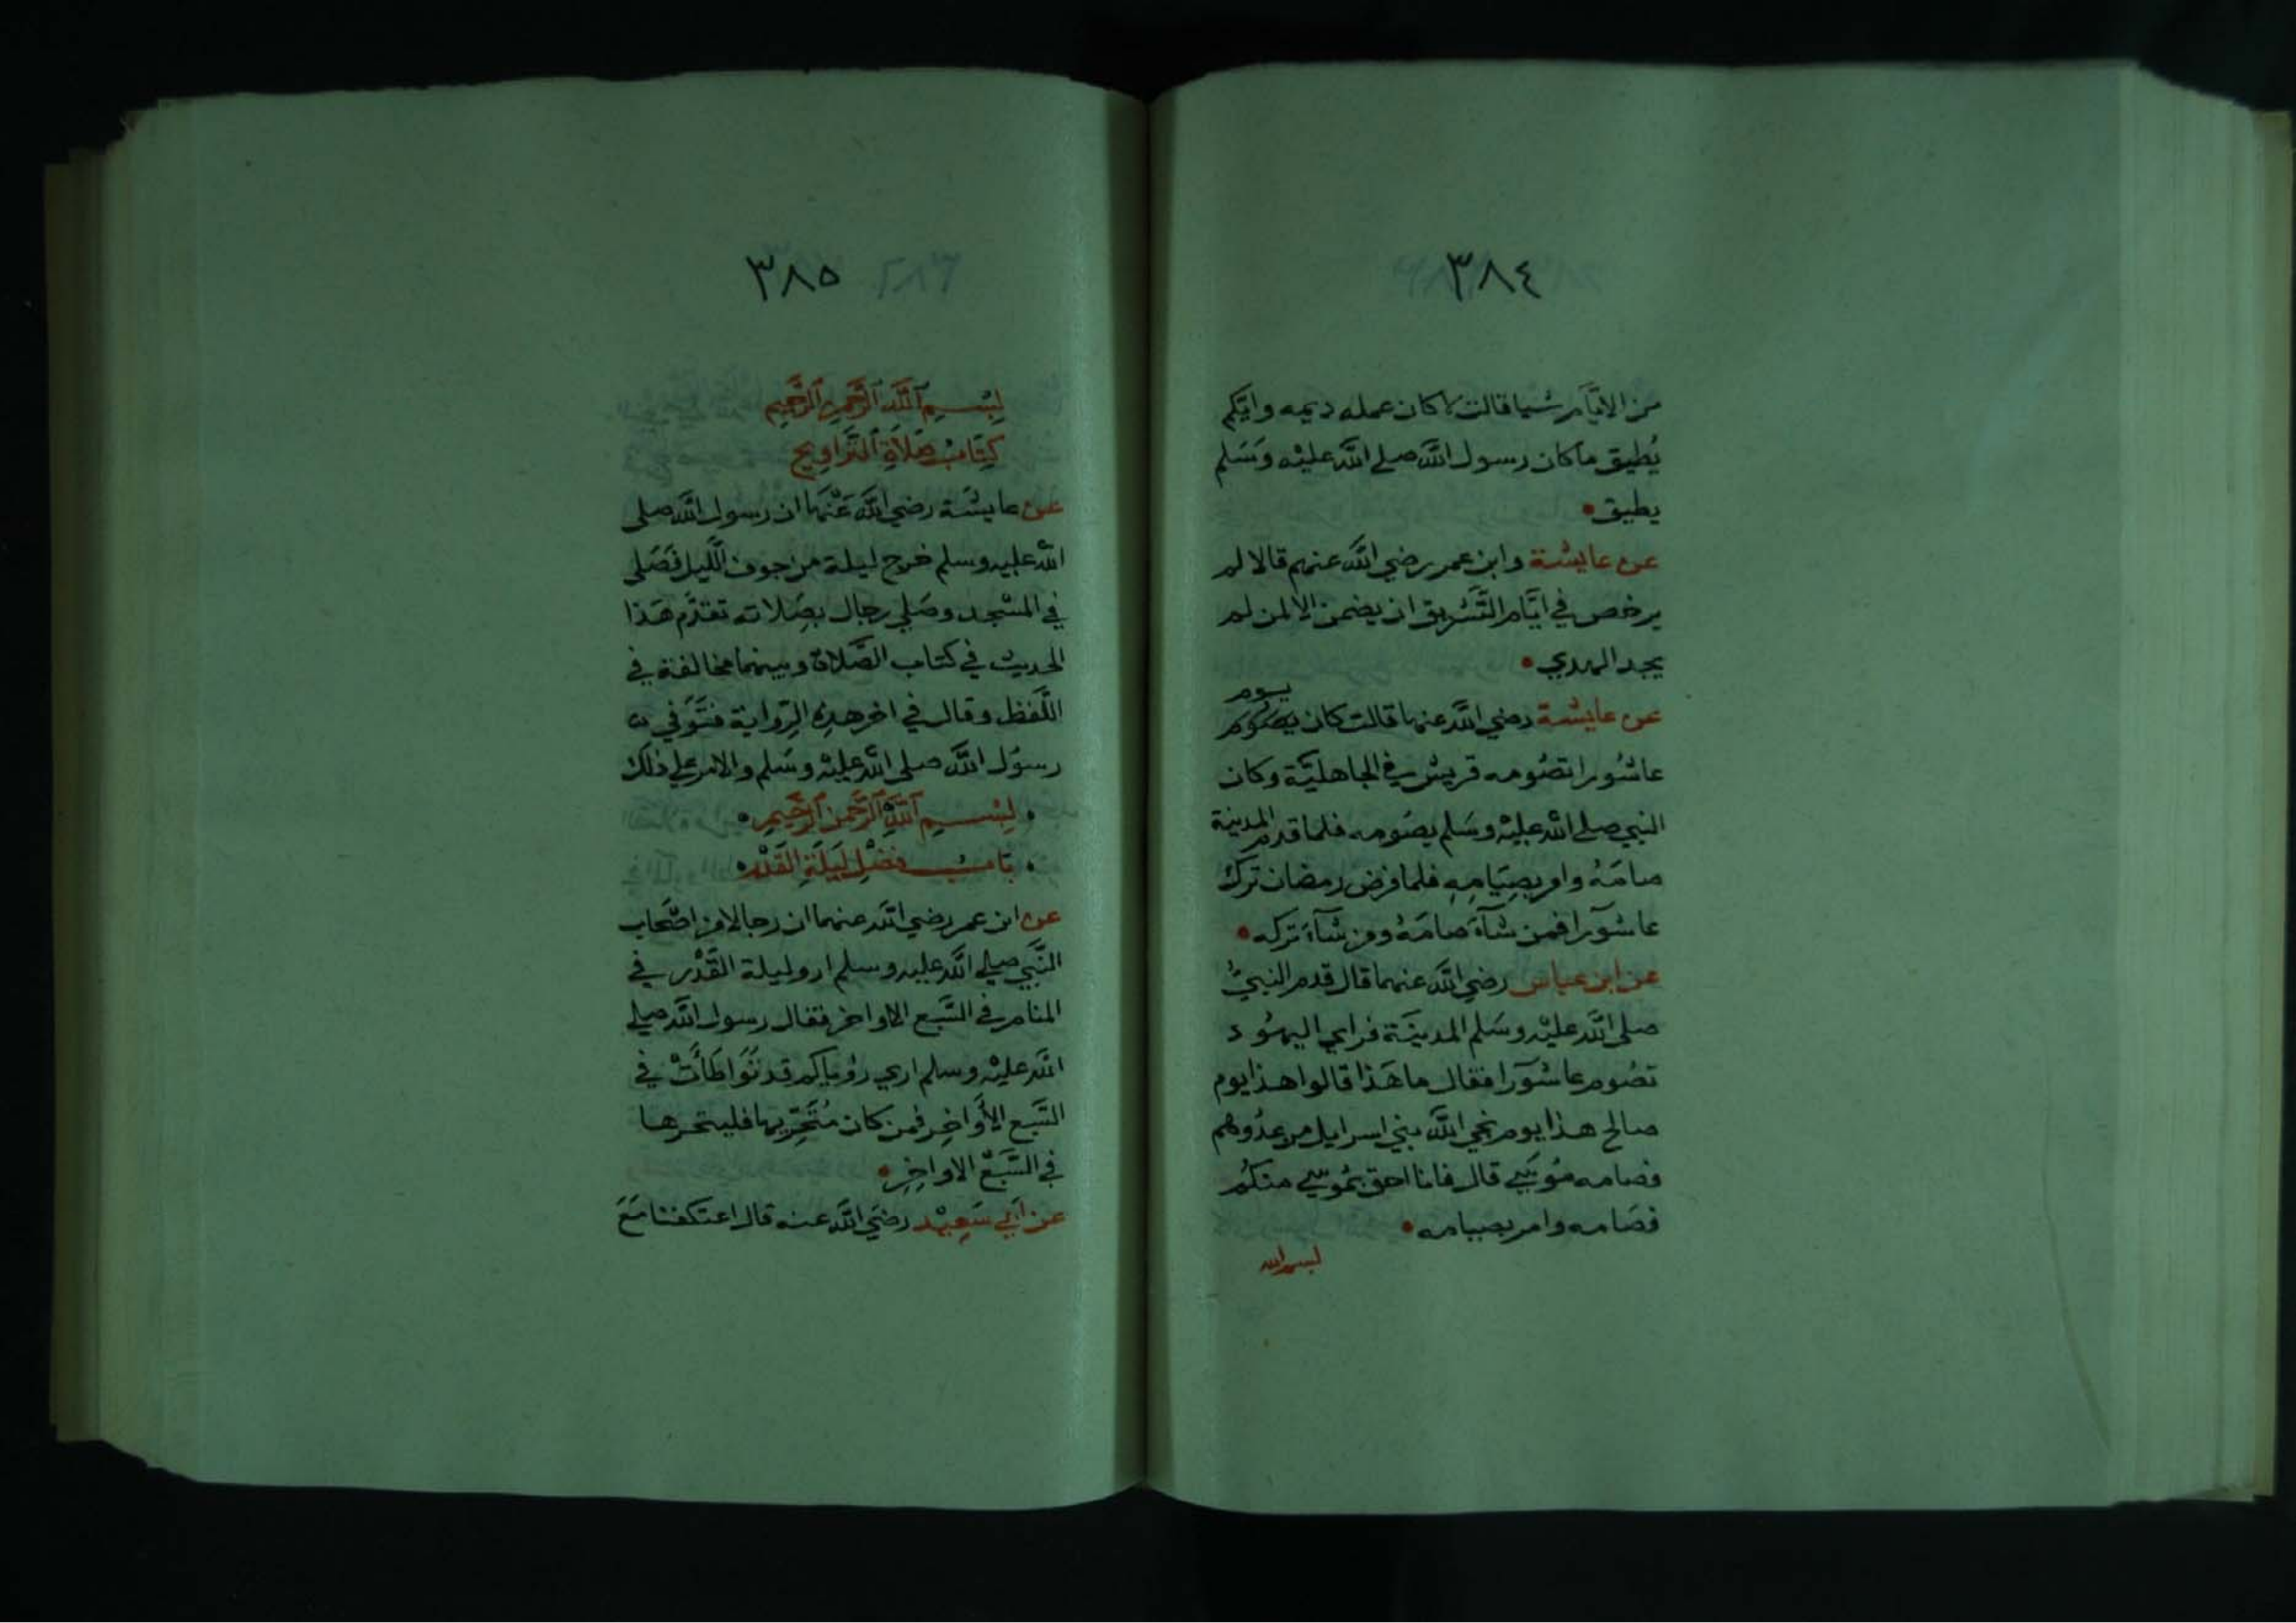 ٣٨٤
من الايّام شيا قالت لا كان عمله ديمه وايّكم
يُطيق ما كان رسول الله صلى الله عليْه وَسَلم
يطيق
عن عايشة وابن عمر رضي الله عنهم قالا لم
يرخص في ايّام التَّشريق ان يضمن الا لمن لم
يجد الهدي
يوم
عن عايشة رضي الله عنها قالت كان يصوم
عاشُورا تصُومه قريش في الجاهليّة وكان
النبي صلى الله عليْه وسَلم يصُومه فلما قدم المدينة
صامَهُ وامر بصِيَامِهِ فلما فرض رمضان ترك
عاشوٓرا فمن شآءَ صامَهُ ومن شآءَ تركه
عن ابن عباس رضي الله عنهما قال قدم النبيُّ
صلى الله عليْه وسَلم المدينَة فراي اليهُود
تصُوم عاشوٓرا فقال ما هَذا قالوا هذا يوم
صالح هذا يوم نجي الله بني اسرايل من عدُوهم
فصامه مُوسَي قال فانا احق بمُوسي منكُم
فصَامه وامر بصيامه
بسم الله
٣٨٥
بِسْمِ ٱللَّهِ ٱلرَّحْمٰنِ ٱلرَّحِيْمِ
كِتَابُ صَلَاةِ ٱلتَّرَاوِيحِ
عن عايشَة رضي الله عَنْهَا ان رسول الله صلى
الله عليه وسلم خرج ليلة من جوف اللَّيل فَصَلى
في المسْجد وصَلي رجال بصَلاته تقدّم هَذا
الحديث في كتاب الصَّلاة وبينهما مخالفة في
اللَّفظ وقال في اخر هذِهِ الرِّواية فتُوَفي
رسوُل الله صلى الله عليْه وسَلم والامر علي ذلك
بِسْمِ ٱللَّهِ ٱلرَّحْمٰنِ ٱلرَّحِيمِ
بَابُ فَضْلِ لَيلَةِ القَدْر
عن ابن عمر رضي الله عنهما ان رجالا من اصْحاب
النَّبي صلى الله عليه وسلم اروا ليلة القَدْر في
المنام في السَّبع الاواخر فقال رسول الله صلي
الله عليْه وسلم اري رؤياكم قد تَوَاطَأَتْ في
السَّبع الأَوَاخِر فمن كان مُتَحَرّيها فليتحرها
في السَّبْع الاواخِرِ
عن أبي سَعِيْد رضَي الله عنه قال اعتكفنا مَعَ